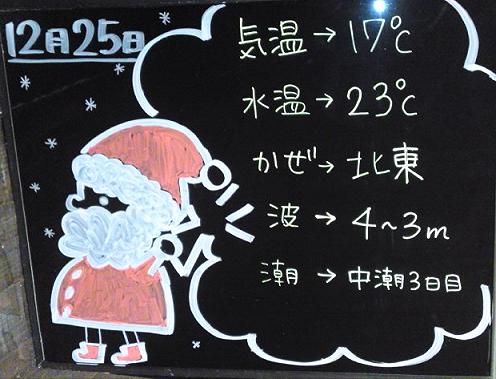 12月25日
気温→17℃
水温→23℃
かぜ→北東
波→4~3m
潮→中潮3日目